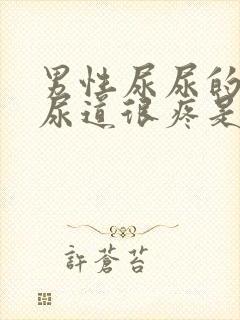 男性尿尿的
尿道很疼是
許蒼苔